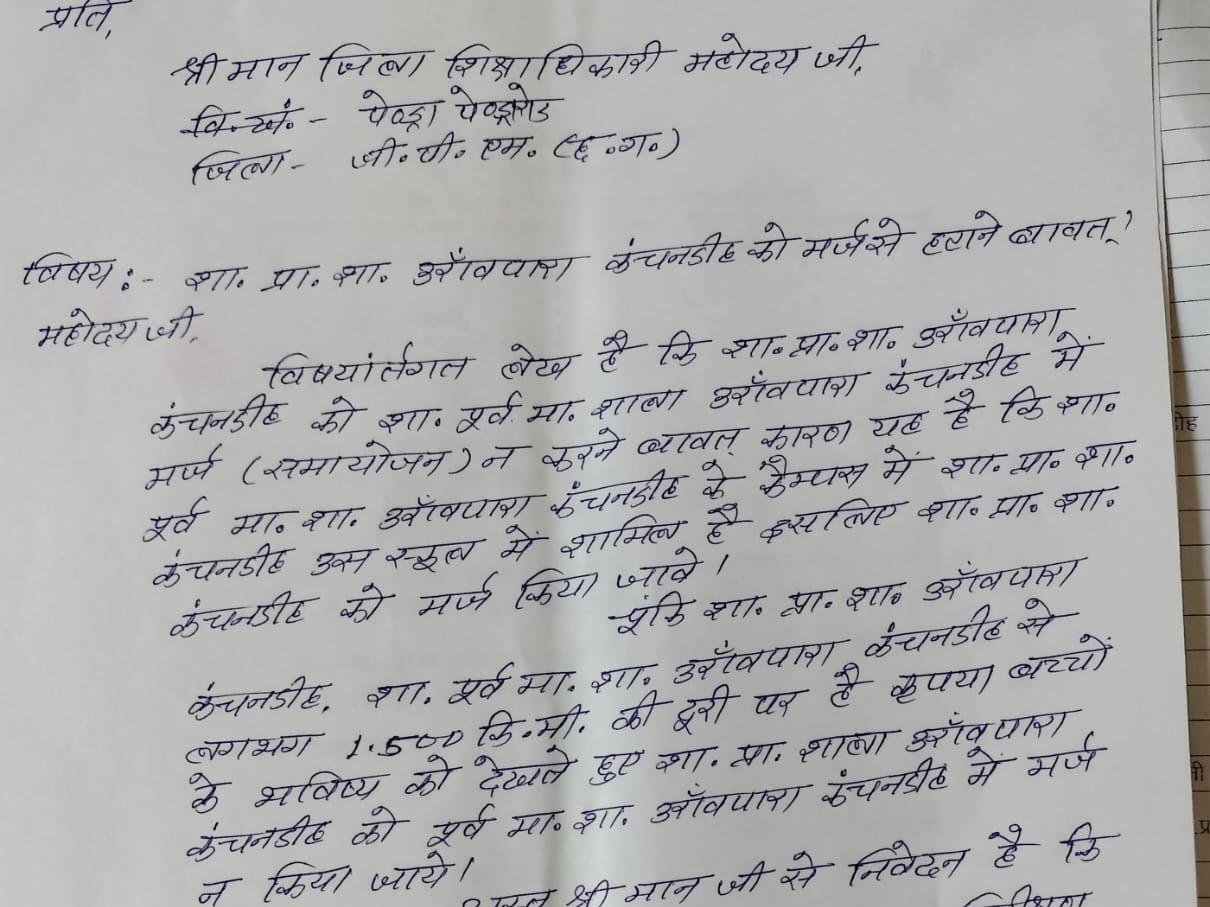 प्रति,
श्रीमान जिला शिक्षाधिकारी महोदय जी,
वि.खं. - पेण्ड्रा पेण्ड्रारोड
जिला - जी. पी. एम. (छ.ग.)
विषय :- शा. प्रा. शा. उराँवपारा कंचनडीह को मर्ज से हटाने बावत्।
महोदय जी,
विषयांर्तगत लेख है कि शा. प्रा. शा. उराँवपारा
कंचनडीह को शा. पूर्व मा. शाला उराँवपारा कंचनडीह में
मर्ज (समायोजन) न करने बावत् कारण यह है कि शा.
पूर्व मा. शा. उराँवपारा कंचनडीह के कैम्पस में शा. प्रा. शा.
कंचनडीह उस स्कूल में शामिल है इसलिए शा. प्रा. शा.
कंचनडीह को मर्ज किया जावे।
चूंकि शा. प्रा. शा. उराँवपारा
कंचनडीह, शा. पूर्व मा. शा. उराँवपारा कंचनडीह से
लगभग 1.500 कि.मी. की दूरी पर है कृपया बच्चों
के भविष्य को देखते हुए शा. प्रा. शाला उराँवपारा
कंचनडीह को पूर्व मा. शा. उराँवपारा कंचनडीह में मर्ज
न किया जाये।
श्रीमान जी से निवेदन है कि